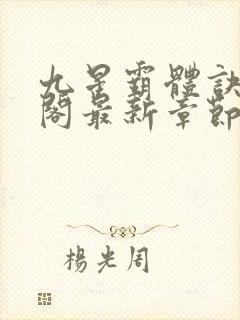 九星霸體訣
閣最新章節
楊光周